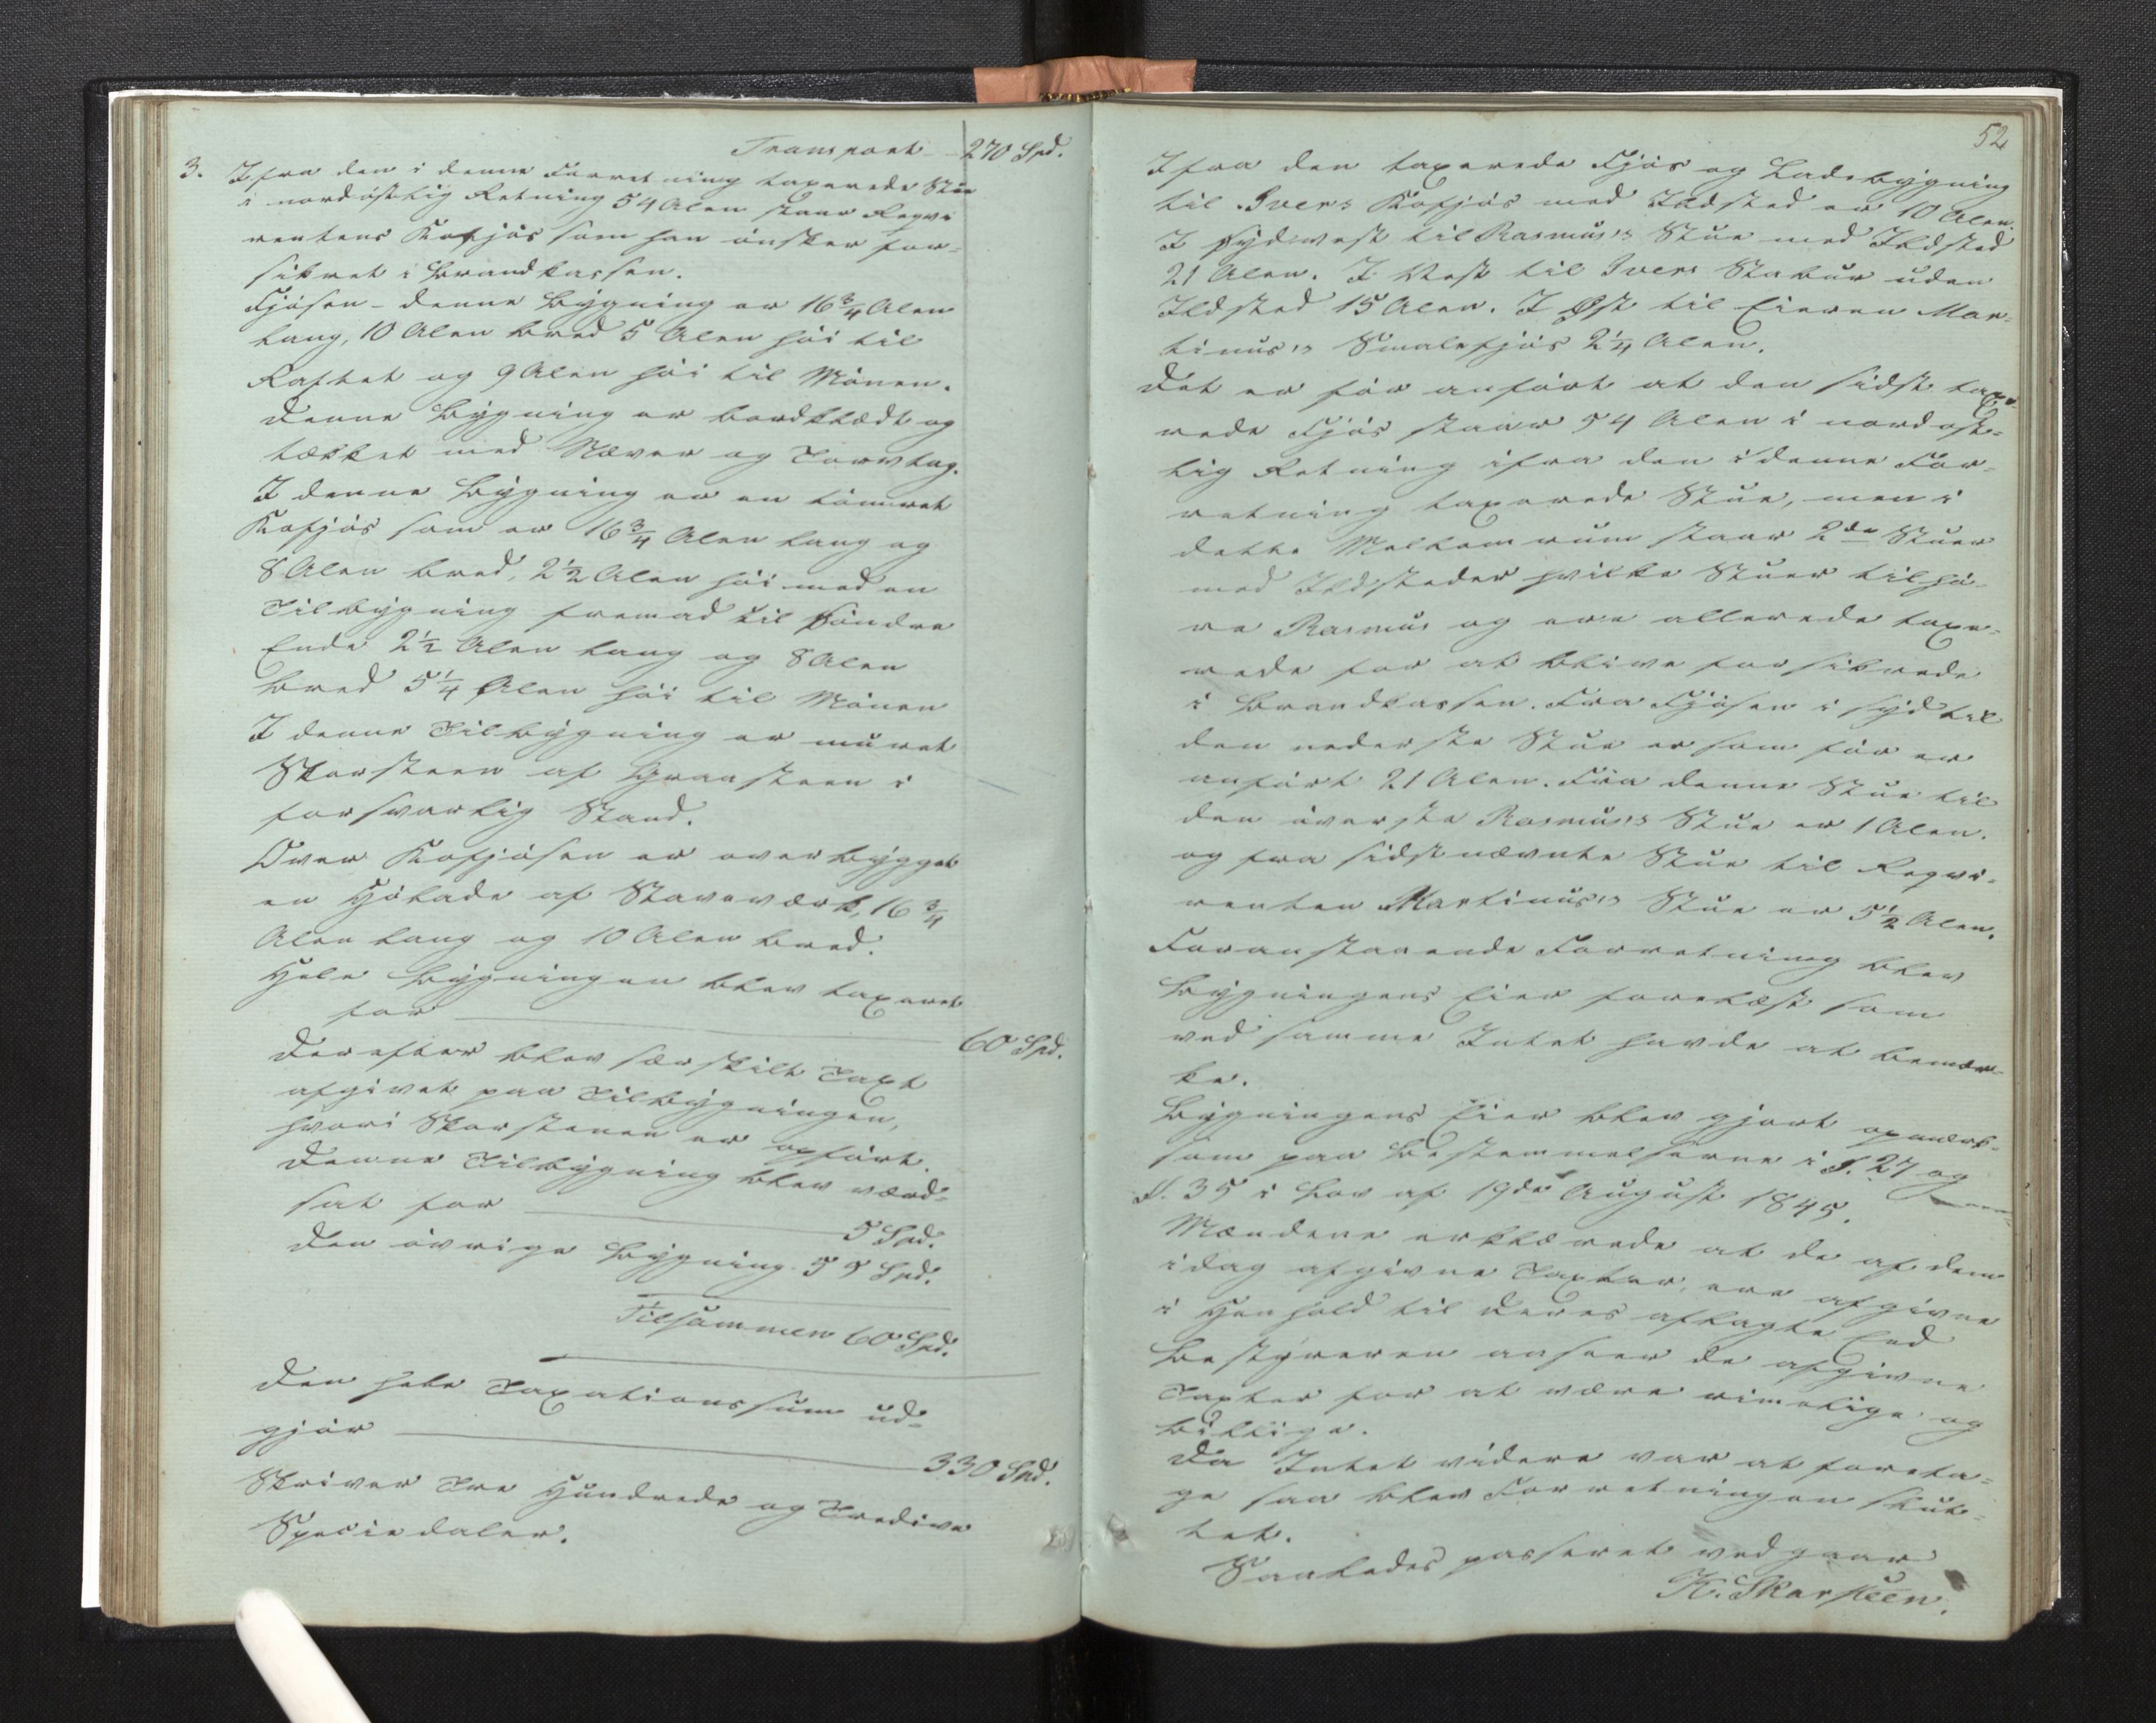 Transport - 270 Spd.
3. Ifra den i denne Forretning taxerede Stue
i nordøstlig Retning 54 Alen staar Reqvi
rentens Kofjøs som han ønsker for-
sikret i Brandkassen.
Fjøsen - denne Bygning er 16 3/4 Alen
lang, 10 Alen bred 5 Alen høi til
Raftet og 9 Alen høi til Mønen.
Denne Bygning er bordklædt og
tækket med Næver og Torvtag.
I denne Bygning er en tømret
Kofjøs som er 16 3/4 Alen lang og
8 Alen bred, 2 1/2 Alen høi med en
Tilbygning fremad til søndre
Ende 2 1/2 Alen lang og 8 Alen
bred 5 1/4 Alen høi til Mønen
I denne Tilbygning er muret
Skorsteen af Graasteen i
forsvarlig Stand.
Over Kofjøsen er overbygget
en Høelade af Staveværk, 16 3/4
Alen lang og 10 Alen bred.
Hele Bygningen blev taxeret
for 60 Spd.
Derefter blev særskilt Taxt
afgivet paa Tilbygningen,
hvori Skorstenen er opført.
Denne Tilbygning blev værd-
sat for 5 Spd.
Den øvrige Bygning 55 Spd.
Tilsammen 60 Spd.
Den hele Taxationssum ud-
gjør 330 Spd.
Skriver Tre Hundrede og Tredive
Speciedaler.
52
Ifra den taxerede Fjøs og Ladebygning
til Ivers Kofjøs med Ildsted er 10 Alen.
I Sydvest til Rasmus's Stue med Ildsted
21 Alen. I Vest til Ivers Stabur uden
Ildsted 15 Alen. I Øst til Eieren Mar-
tinus's Smalefjøs 2 1/4 Alen.
Det er før anført at den sidst taxe-
rede Fjøs staar 54 Alen i nordøst-
lig Retning ifra den i denne For-
retning taxerede Stue, men i
dette Mellemrum staar 2de Stuer
med Ildsteder hvilke Stuer tilhø-
re Rasmus og ere allerede taxe-
rede for at blive forsikrede
i Brandkassen. Fra Fjøsen i Syd til
den nederste Stue er som før er
anført 21 Alen. Fra denne Stue til
den øverste Rasmus's Stue er 1 Alen.
og fra sidstnævnte Stue til Reqvi-
renten Martinus's Stue er 5 1/2 Alen.
Foranstaaende Forretning blev
Bygningens Eier forelæst som
ved samme Intet havde at bemær-
ke.
Bygningens Eier blev gjort opmærk-
som paa Bestemmelserne i §. 27 og
§. 35 i Lov af 19de August 1845.
Mændene erklærede at de af dem
idag afgivne Taxter, ere afgivne
i Henhold til deres aflagte Eed
Bestyreren anseer de afgivne
Taxter for at være rimelige og
billige.
Da Intet videre var at foreta-
ge saa blev Forretningen slut-
tet.
Saaledes passeret vedgaar
K. Skarsteen.